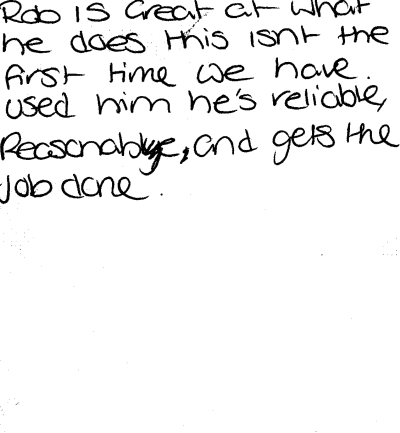 Rob is Great at what
he does this isnt the
first time we have.
used him he's reliable,
Reasonable, and gets the
Job done.